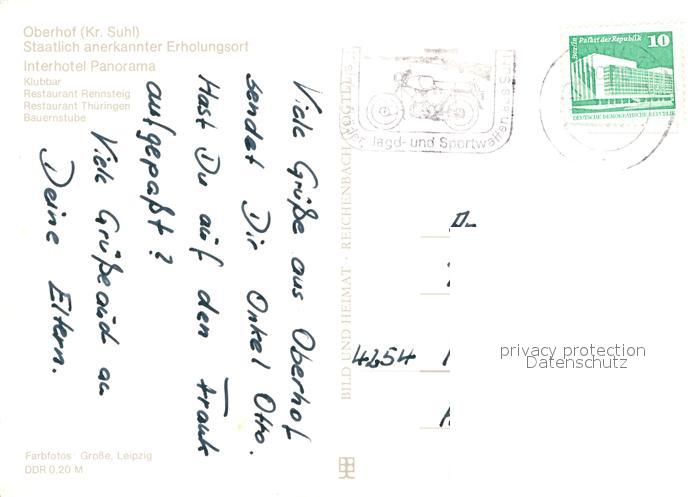 Oberhof (Kr. Suhl)
Staatlich anerkannter Erholungsort
Interhotel Panorama
Klubbar
Restaurant Rennsteig
Restaurant Thüringen
Bauernstube
Viele Grüße aus Oberhof
sendet Dir Onkel Otto.
Hast Du auf den Frank
aufgepaßt?
Viele Grüße auch an
Deine Eltern.
Farbfotos: Große, Leipzig
DDR 0,20 M
BILD UND HEIMAT · REICHENBACH VOGTL
Jagd- und Sportwaffen aus
Berlin Palast der Republik
10
DEUTSCHE DEMOKRATISCHE REPUBLIK
4254
privacy protection
Datenschutz